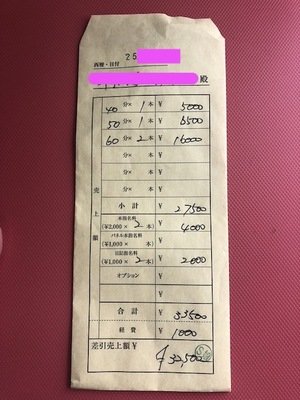 ・日付 25
殿
売上額
40 分× 1 本 ¥ 5000
50 分× 1 本 ¥ 6500
60 分× 2 本 ¥ 16000
分× 本 ¥
分× 本 ¥
分× 本 ¥
小計 ¥ 27500
本指名料
(¥2,000 × 2 本) ¥ 4000
パネル本指名料
(¥1,000 × 本) ¥
日記指名料
(¥1,000 × 2 本) ¥ 2000
オプション ¥
¥
合計 ¥ 33500
経費 ¥ 1000
差引売上額 ¥ ¥32,500